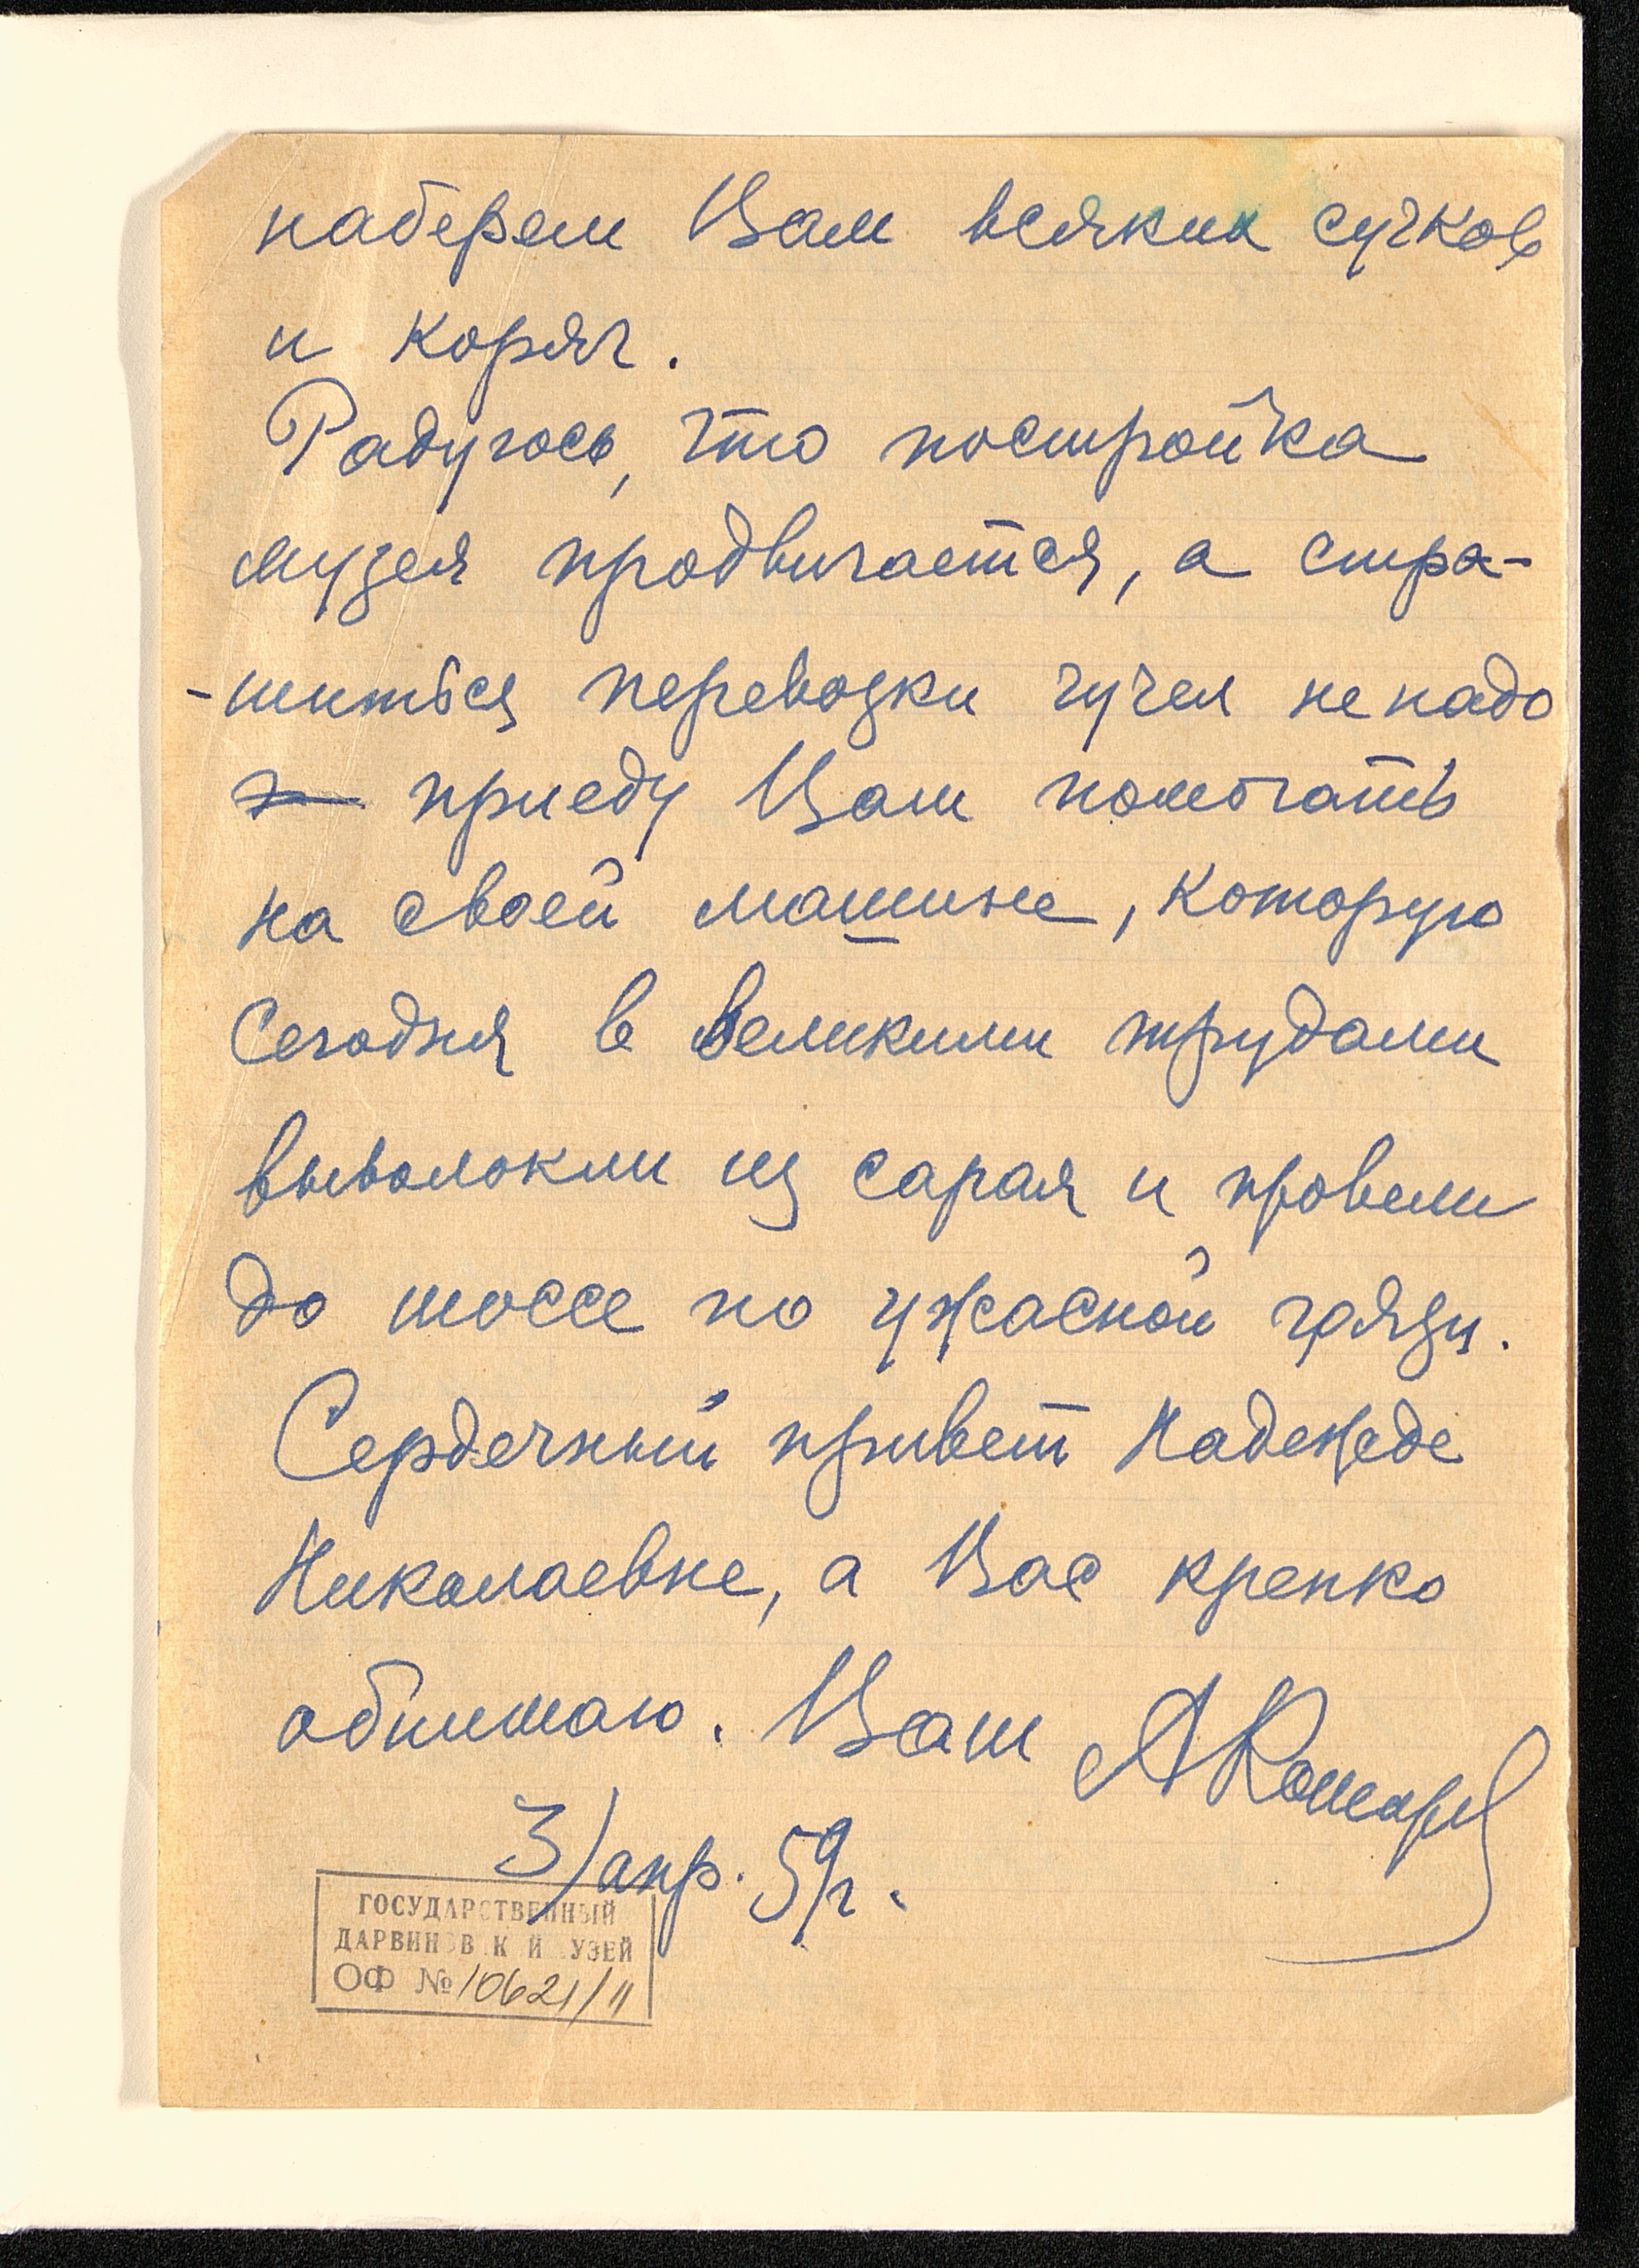 наберем Вам всяких сучков
и коряг.
Радуюсь, что постройка
музея продвигается, а стра-
-шиться перевозки чучел не надо
приеду Вам помогать
на своей машине, которую
Сегодня в великими трудами
выволокли из сарая и провели
до шоссе по ужасной грязи.
Сердечный привет Надежде
Николаевне, а Вас крепко
обнимаю. Ваш АКомаров
3/апр. 59г.
ГОСУДАРСТВЕННЫЙ
ДАРВИНОВ К Й УЗЕЙ
ОФ № 10621/11